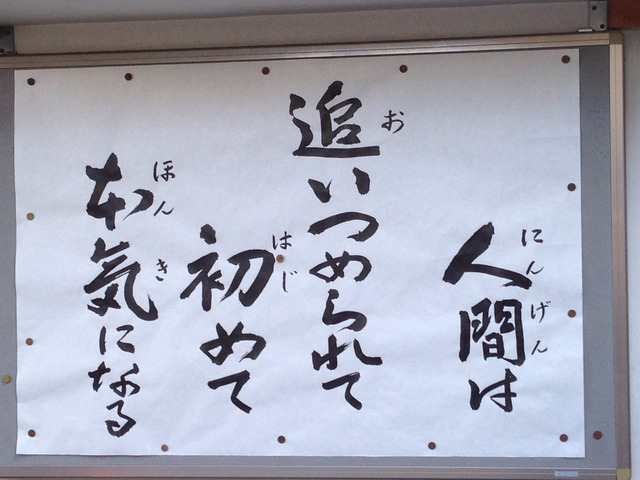 人間は
にんげん
追いつめられて
お
初めて
はじ
本気になる
ほんき